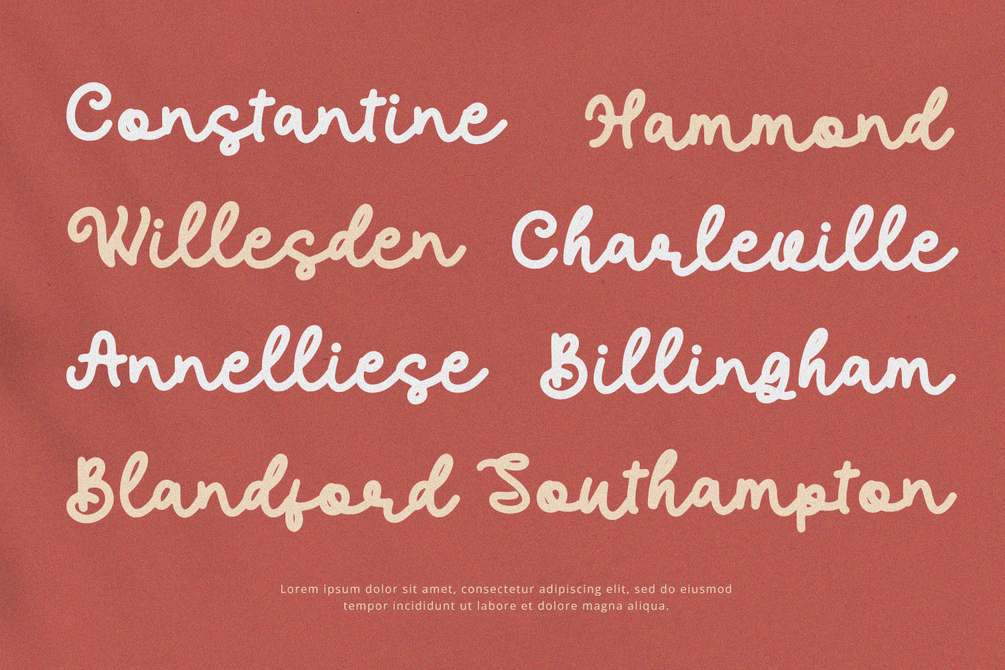 Constantine Hammond
Willesden Charleville
Annelliese Billingham
Blandford Southampton
Lorem ipsum dolor sit amet, consectetur adipiscing elit, sed do eiusmod
tempor incididunt ut labore et dolore magna aliqua.